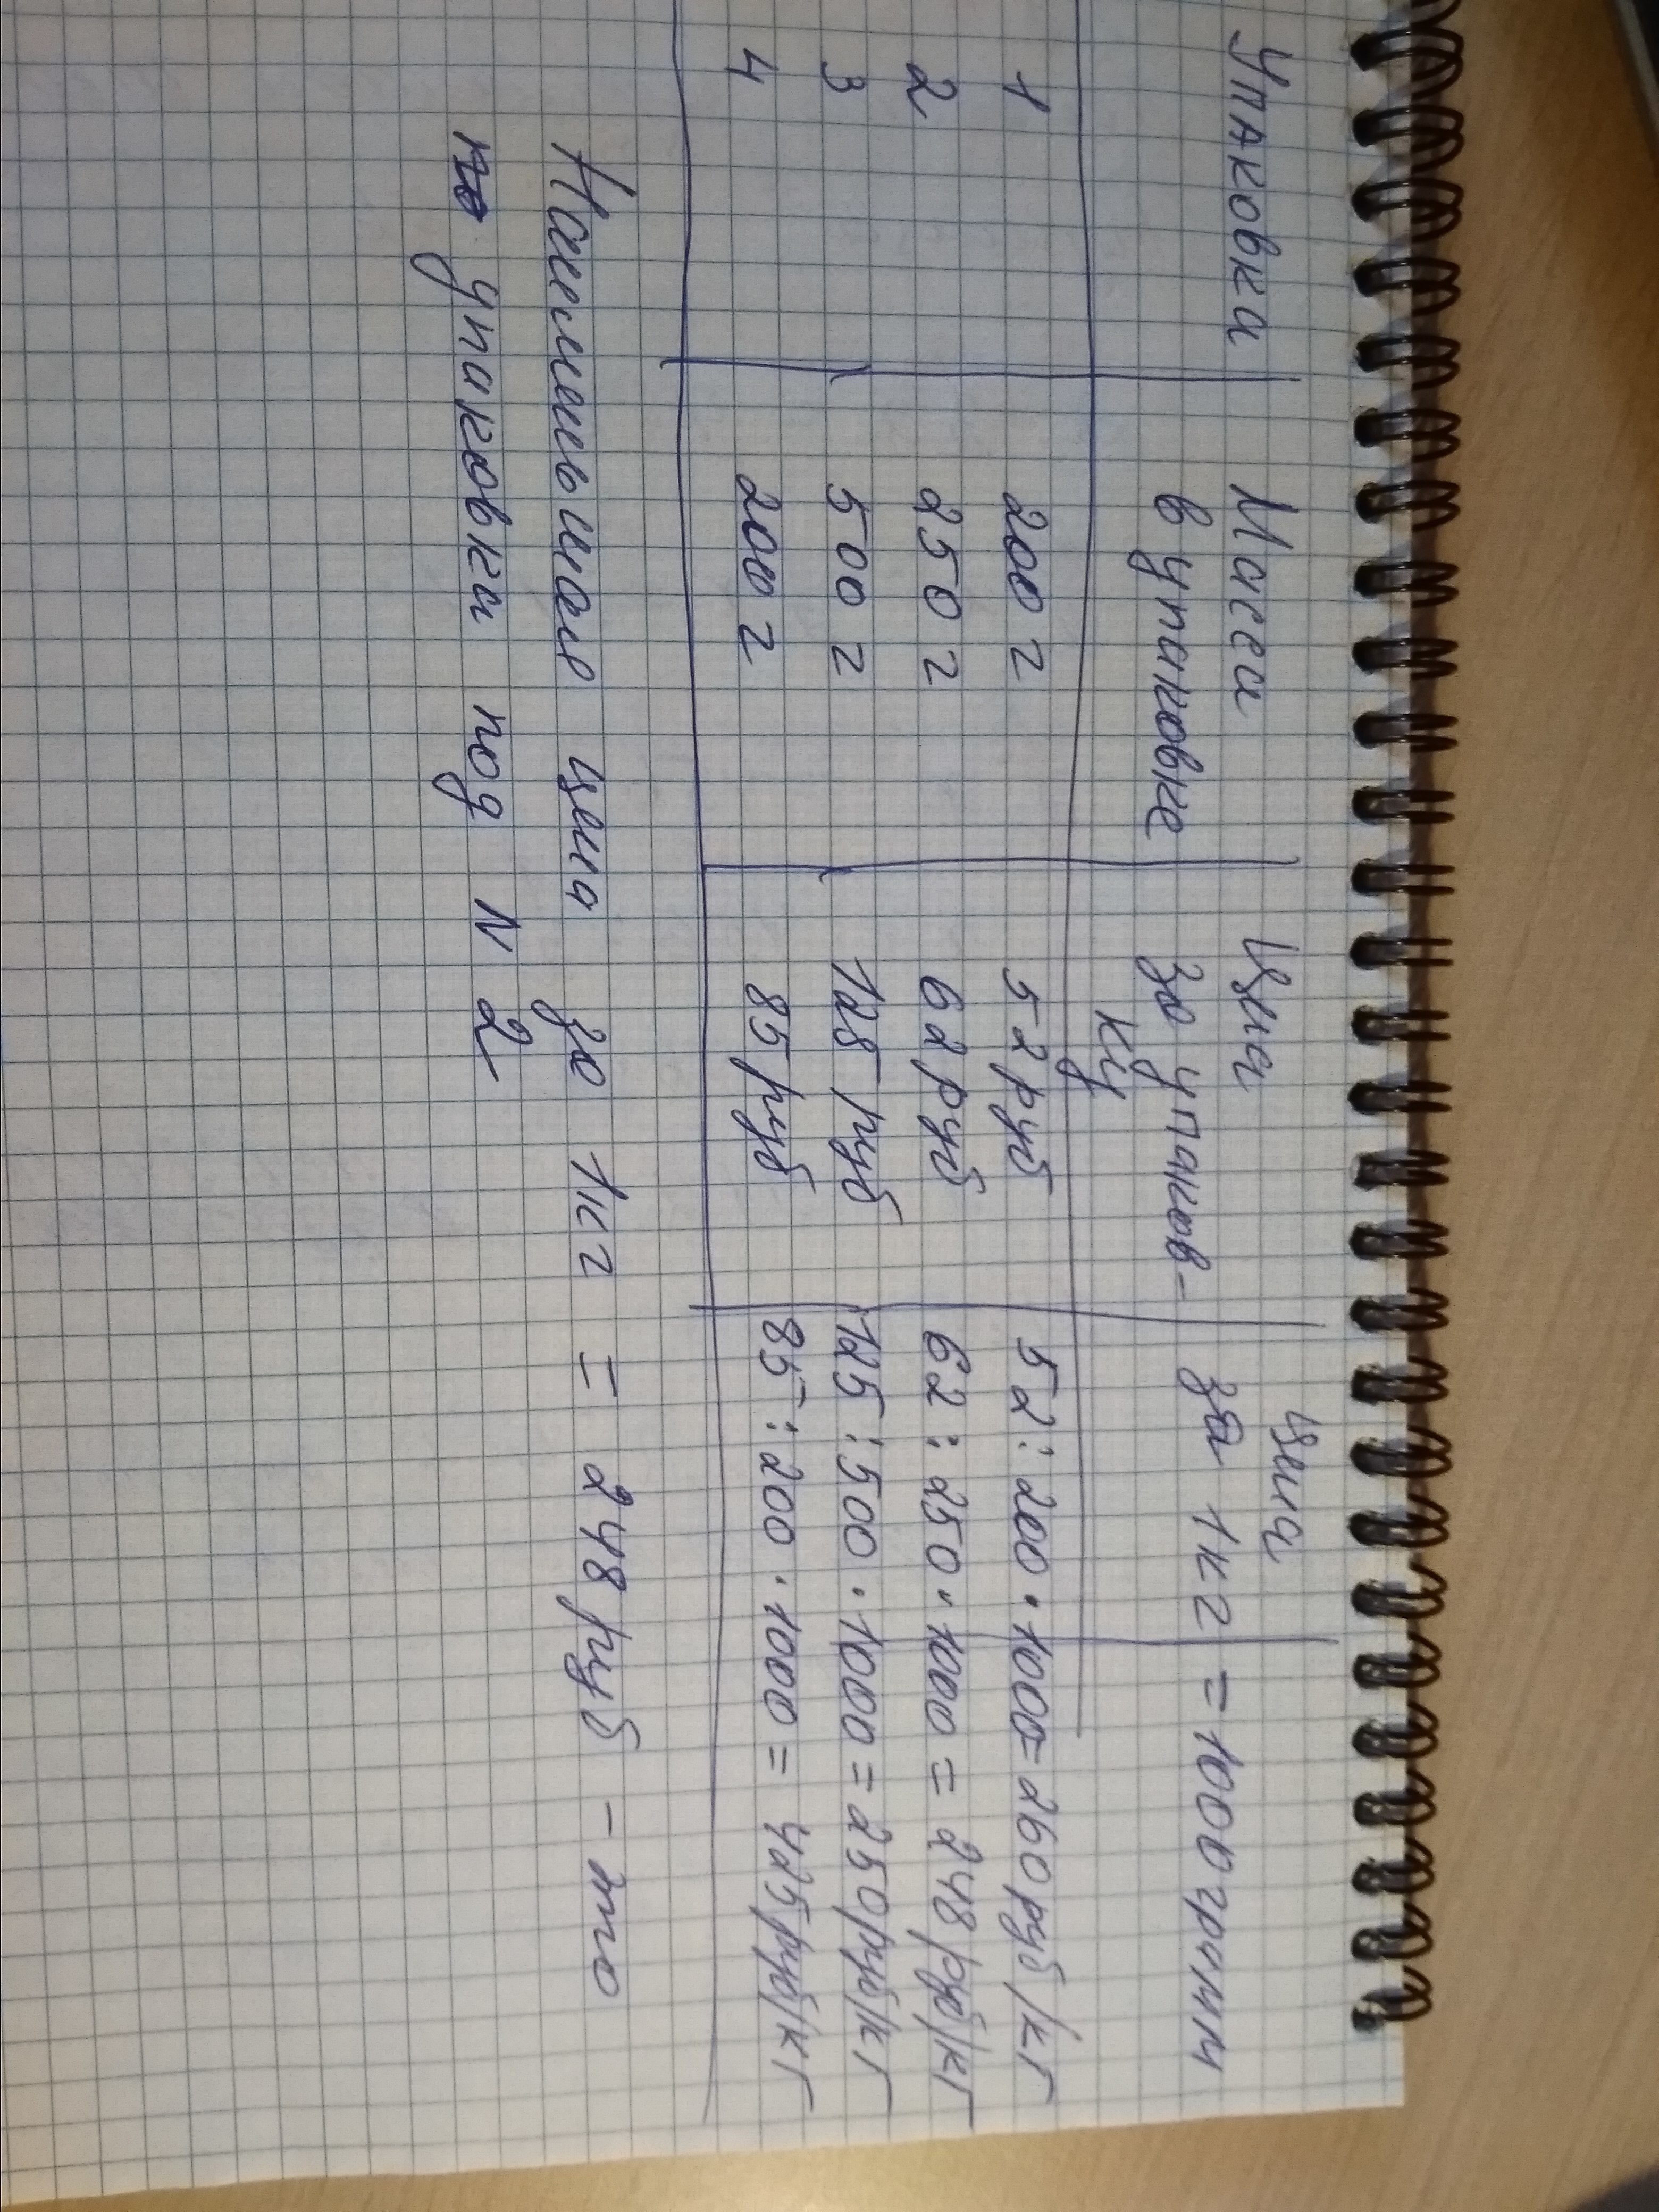 Упаковка Масса Цена Цена
в упаковке за упаков- за 1кг = 1000 грамм
ку
1 200 г 52 руб 52 : 200 · 1000 = 260 руб/кг
2 250 г 62 руб 62 : 250 · 1000 = 248 руб/кг
3 500 г 128 руб 125 : 500 · 1000 = 250 руб/кг
4 200 г 85 руб 85 : 200 · 1000 = 425 руб/кг
Наименьшая цена за 1кг = 248 руб - это
упаковка под N 2